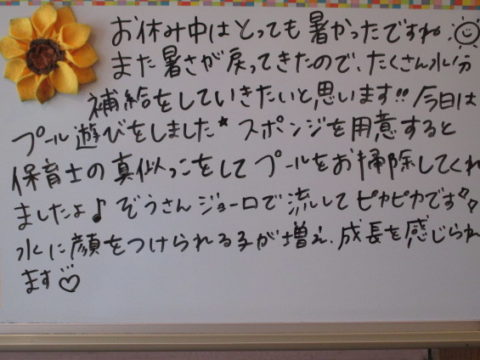 お休み中はとっても暑かったですね
また暑さが戻ってきたので、たくさん水分
補給をしていきたいと思います!! 今日は
プール遊びをしました★ スポンジを用意すると
保育士の真似っこをしてプールをお掃除してくれ
ましたよ♪ ぞうさんジョーロで流してピカピカです
水に顔をつけられる子が増え、成長を感じられ
ます♡